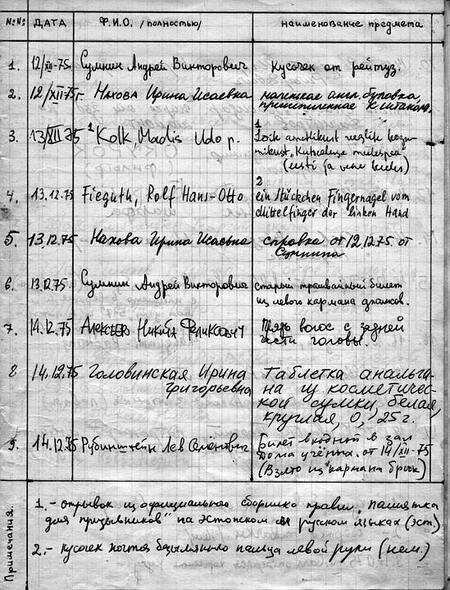 №№ ДАТА Ф.И.О. /полностью/ наименование предмета
1. 12/XII-75 Сумнин Андрей Викторович Кусочек от рейтуз.
2. 12/XII-75г. Нахова Ирина Исаевна маленькая англ. булавка,
пришпиленная к штанам.
3. 13/XII 75 ¹Kolk, Madis Udo p. 1
(eesti ja vene keeles)
4. 13.12.75 Fieguth, Rolf Hans-Otto 2 ein Stückchen Fingernagel vom
Mittelfinger der linken Hand
5. 13.12.75 Нахова Ирина Исаевна справка от 12.12.75 от
6. 13.12.75 Сумнин Андрей Викторович старый трамвайный билет
из левого кармана джинсов.
7. 14.12.75 Алексеев Никита Феликсович Прядь волос с задней
части головы.
8 14.12.75 Головинская Ирина Григорьевна Таблетка анальги-
на из косметичес-
кой сумки, белая,
круглая, 0,25 г.
9. 14.12.75 Рубинштейн Лев Семёнович Билет входной в зал
Дома учёных. от 14/XII-75
(Взято из кармана брюк)
Примечания.
1.- отрывок из официального сборника правил „памятка
для призывников" на эстонском и русском языках (эст.)
2.- кусочек ногтя безымянного пальца левой руки (нем.)